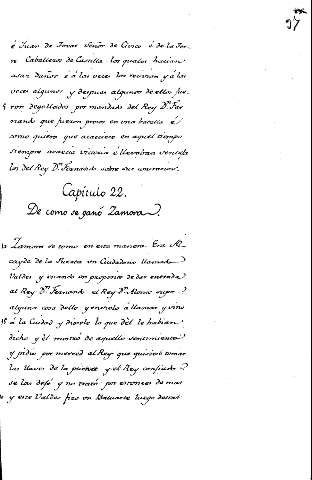 97
é Juan de Tovar Señor de Cevico é de la Tor-
re Caballeros de Castilla los quales hacian
asaz daños é á las veces los revivian y á las
veces algunos y despues algunos de ellos fue-
5 ron degollados por mandado del Rey Dn. Fer-
nando que fueron presos en una batalla é
como quiera que acaeciere en aquel tiempo
siempre avacia victoria é llevaban
los del Rey Dn. Fernando sobre sus contrarios.
Capítulo 22.
De como se ganó Zamora.
10 Zamora se tomó en esta manera. Era Al-
cayde de la Puente un Ciudadano llamado
Valdes y estando en proposito de dar entrada
al Rey Dn. Fernando el Rey Dn. Alonso supo
alguna cosa dello y enviolo á llamar y vino
15 á la Ciudad y díxole lo que dél le habian
dicho y él mostró de aquello sentimiento
y pidio por merced al Rey que quisiese tomar
las llaves de la puente y el Rey
se las dexó y no trató por entonces de mas
y este Valdes fizo un Baluarte luego